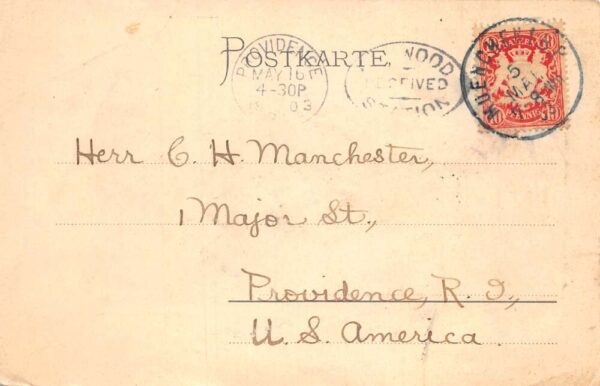 POSTKARTE.
PROVIDENCE
MAY 16
4-30P
RECEIVED
STATION
BAYERN
10
PFENNIG
5
MAI
Herr C. H. Manchester,
1 Major St.,
Providence, R. I.,
U. S. America.